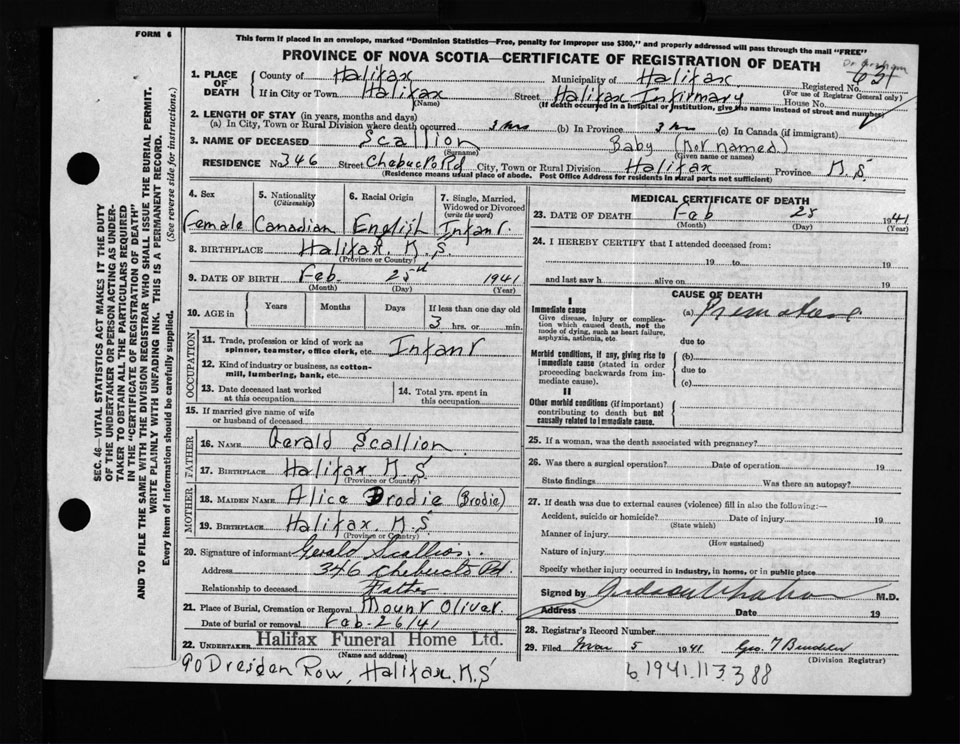 FORM 6
This form if placed in an envelope, marked "Dominion Statistics—Free, penalty for improper use $300," and properly addressed will pass through the mail "FREE"
PROVINCE OF NOVA SCOTIA—CERTIFICATE OF REGISTRATION OF DEATH
1. PLACE OF DEATH
County of Halifax Municipality of Halifax Registered No. 631
(For use of Registrar General only)
If in City or Town Halifax Street Halifax Infirmary House No.
(Name) (If death occurred in a hospital or institution, give the name instead of street and number)
2. LENGTH OF STAY (in years, months and days)
(a) In City, Town or Rural Division where death occurred 3 hrs (b) In Province 3 hrs (c) In Canada (if immigrant)
3. NAME OF DECEASED Scallion Baby (Not named)
(Surname) (Given name or names)
RESIDENCE No 346 Street Chebucto Rd City, Town or Rural Division Halifax Province N.S
(Residence means usual place of abode. Post Office Address for residents in rural parts not sufficient)
4. Sex 5. Nationality (Citizenship) 6. Racial Origin 7. Single, Married, Widowed or Divorced (write the word)
Female Canadian English Infant.
8. BIRTHPLACE Halifax. N.S.
(Province or Country)
9. DATE OF BIRTH Feb. 25th 1941
(Month) (Day) (Year)
10. AGE in Years Months Days If less than one day old
3 hrs. or min.
OCCUPATION
11. Trade, profession or kind of work as spinner, teamster, office clerk, etc. Infant
12. Kind of industry or business, as cotton-mill, lumbering, bank, etc.
13. Date deceased last worked at this occupation
14. Total yrs. spent in this occupation
15. If married give name of wife or husband of deceased
FATHER
16. NAME Gerald Scallion
17. BIRTHPLACE Halifax N.S
(Province or Country)
MOTHER
18. MAIDEN NAME Alice Brodie (Brodie)
19. BIRTHPLACE Halifax. N.S
(Province or Country)
20. Signature of informant Gerald Scallion
Address 346 Chebucto Rd.
Relationship to deceased Father
21. Place of Burial, Cremation or Removal Mount Olivet.
Date of burial or removal Feb-26/41
22. UNDERTAKER Halifax Funeral Home Ltd.
(Name and address)
90 Dresden Row, Halifax, N.S
MEDICAL CERTIFICATE OF DEATH
23. DATE OF DEATH Feb 25 1941
(Month) (Day) (Year)
24. I HEREBY CERTIFY that I attended deceased from:
19 to 19
and last saw h alive on 19
CAUSE OF DEATH
I
Immediate cause
Give disease, injury or complication which caused death, not the mode of dying, such as heart failure, asphyxia, asthenia, etc.
(a) Premature
due to
Morbid conditions, if any, giving rise to immediate cause (stated in order proceeding backwards from immediate cause).
(b)
due to
(c)
II
Other morbid conditions (if important) contributing to death but not causally related to immediate cause.
25. If a woman, was the death associated with pregnancy?
26. Was there a surgical operation? Date of operation 19
State findings Was there an autopsy?
27. If death was due to external causes (violence) fill in also the following:—
Accident, suicide or homicide? Date of injury 19
(State which)
Manner of injury
(How sustained)
Nature of injury
Specify whether injury occurred in industry, in home, or in public place
Signed by M.D.
Address Date 19
28. Registrar's Record Number
29. Filed Mar 5 1941
(Division Registrar)
b 1941.113388
SEC. 46—VITAL STATISTICS ACT MAKES IT THE DUTY
OF THE UNDERTAKER OR PERSON ACTING AS UNDER-
TAKER TO OBTAIN ALL THE PARTICULARS REQUIRED
IN THE "CERTIFICATE OF REGISTRATION OF DEATH"
AND TO FILE THE SAME WITH THE DIVISION REGISTRAR WHO SHALL ISSUE THE BURIAL PERMIT.
WRITE PLAINLY WITH UNFADING INK. THIS IS A PERMANENT RECORD.
Every item of information should be carefully supplied. (See reverse side for instructions.)